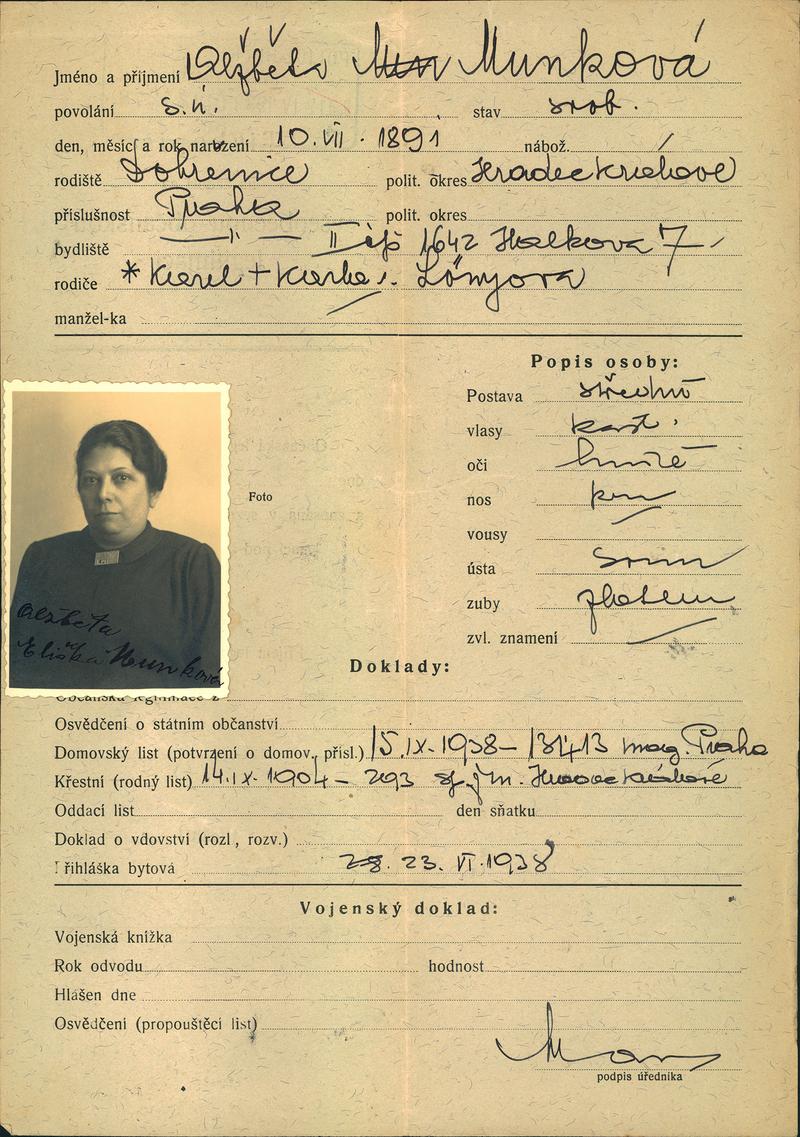 Jméno a příjmení Alžběta Munková
povolání s.ú. stav svob.
den, měsíc a rok narození 10. VII. 1891 nábož.
rodiště Dohrenice polit. okres Hradec Králové
příslušnost Praha polit. okres
bydliště —"— II 1642 Halkova 7
rodiče * Karel +
manžel-ka
Popis osoby:
Postava střední
vlasy kašt.
oči hnědé
Foto
nos
vousy
ústa
zuby
zvl. znamení
Alžběta
Eliška Munková
Doklady:
Osvědčení o státním občanství
Domovský list (potvrzení o domov. přísl.) 15. IX. 1938 – mag. Praha
Křestní (rodný list) 14. IX. 1904 – 293
Oddací list den sňatku
Doklad o vdovství (rozl, rozv.)
řihláška bytová 23. VI. 1938
Vojenský doklad:
Vojenská knížka
Rok odvodu hodnost
Hlášen dne
Osvědčení (propouštěcí list)
podpis úředníka